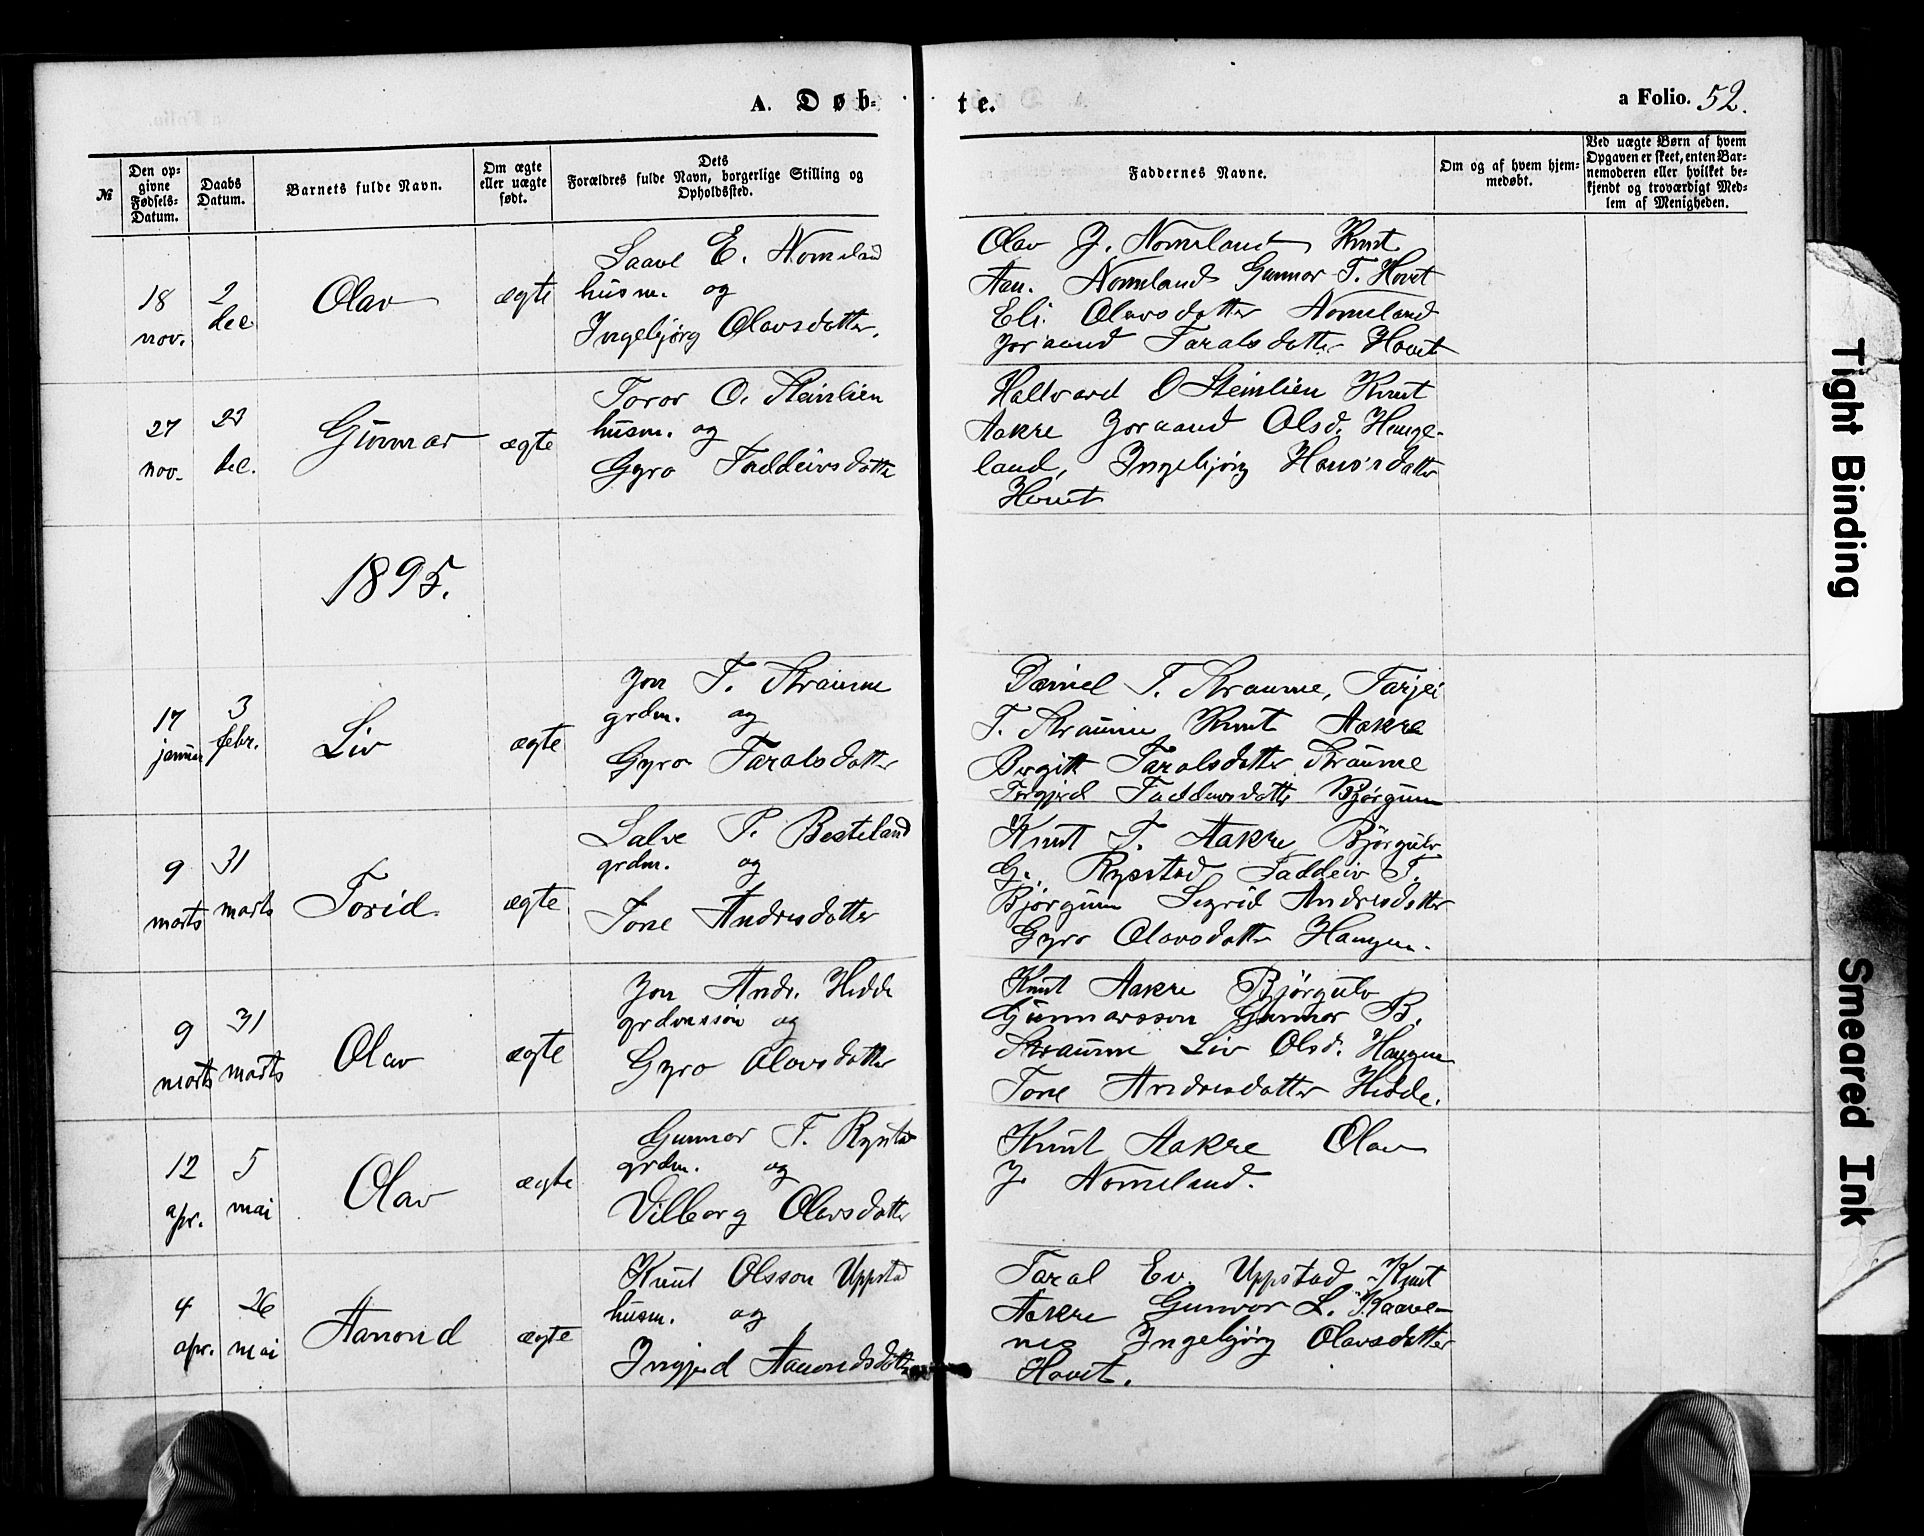 A. Døb-
te.
a Folio. 52.
№
Den op-
givne
Fødsels-
Datum.
Daabs
Datum.
Barnets fulde Navn.
Om ægte
eller uægte
født.
Dets
Forældres fulde Navn, borgerlige Stilling og
Opholdssted.
Faddernes Navne.
Om og af hvem hjem-
medøbt.
Ved uægte Børn af hvem
Opgaven er skeet, enten Bar-
nemoderen eller hvilket be-
kjendt og troværdigt Med-
lem af Menigheden.
18
nov.
2
dec
Olav
ægte
Saave E. Nomeland
husm. og
Ingebjørg Olavsdatter.
Olav J. Nomeland Knut
Aan. Nomeland Gunnar T. Hovet
Eli Olavsdatter Nomeland
Joraand Taralsdatter Hovet
27
nov.
23
dec.
Gunnar
ægte
Toror O. Steinlien
husm. og
Gyro Faddeivsdatter
Hallvard O Steinlien Knut
Aakre Joraand Olsd. Hauge-
land, Ingebjørg
Hovet
1895.
17
januar
3
febr.
Liv
ægte
Jon T. Straume
grdm. og
Gyro Taralsdatter
Daniel T. Straume, Tarjei
T. Straume Knut Aakre
Birgitt Taralsdatter Straume
Torgjerd Faddeivsdatter Bjørgum
9
marts
31
marts
Torid
ægte
Salve P. Besteland
grdm. og
Tone Andresdatter
Knut T. Aakre Bjørgulv
G. Rysstad Faddeiv T.
Bjørgum Sigrid Andresdatter
Gyro Olavsdatter Haugen.
9
marts
31
marts
Olav
ægte
Jon Andr. Hidde
grdmsson og
Gyro Olavsdatter
Knut Aakre Bjørgulv
Gunnarsson Gunnar B.
Straume Liv Olsd. Haugen
Tone Andresdatter Hidde.
12
apr.
5
mai
Olav
ægte
Gunnar T. Rysstad
grdm. og
Vilborg Olavsdatter
Knut Aakre Olav
J. Nomeland.
4
apr.
26
mai
Aanond
ægte
Knut Olsson Uppstad
husm. og
Ingjerd Aanondsdatter
Taral Ev. Uppstad Knut
Aakre Gunvor L. Kaave-
nes Ingebjørg Olavsdatter
Hovet.
Tight Binding
Smeared Ink